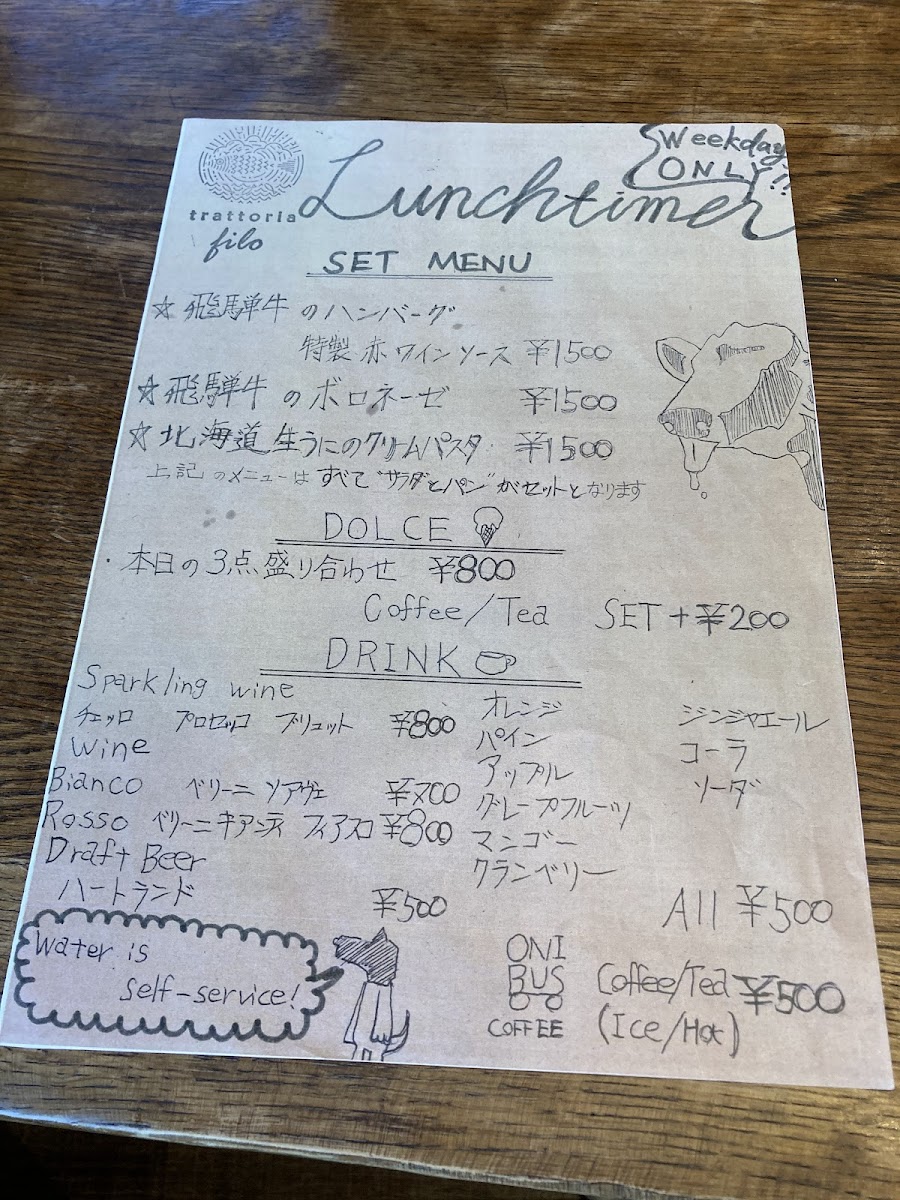 Weekday
ONLY!!
trattoria
filo
Lunchtimer
SET MENU
☆飛騨牛のハンバーグ
特製赤ワインソース ¥1500
☆飛騨牛のボロネーゼ ¥1500
☆北海道生うにのクリームパスタ ¥1500
上記のメニューはすべて"サラダとパン"がセットとなります
DOLCE
・本日の3点盛り合わせ ¥800
Coffee/Tea SET+¥200
DRINK
Sparkling wine
チェッロ プロセッコ ブリュット ¥800
wine
Bianco ベリーニ ソアヴェ ¥700
Rosso ベリーニ キアンティ フィアスコ ¥800
Draft Beer
ハートランド ¥500
オレンジ
パイン
アップル
グレープフルーツ
マンゴー
クランベリー
ジンジャエール
コーラ
ソーダ
All ¥500
Water is
self-service!
ONI
BUS
COFFEE
Coffee/Tea ¥500
(Ice/Hot)